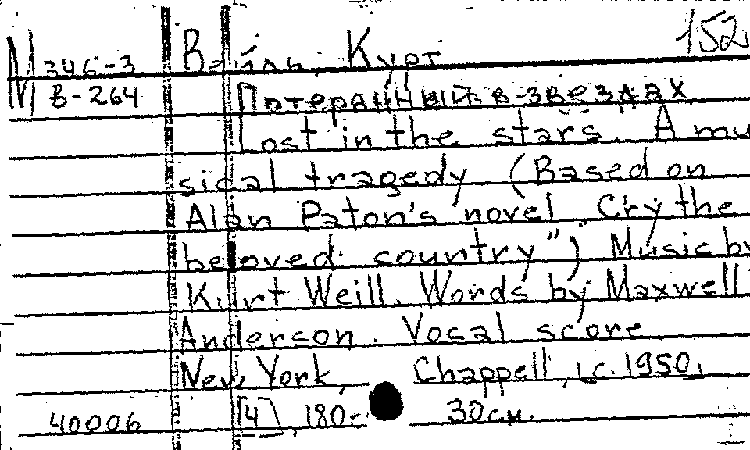 152
М 346-3 Вейль, Курт
М В-264 Потерянный в звездах
Lost in the stars. A mu
sical tragedy (Based on
Alan Paton's novel „Cry the
beloved country") Music by
Kurt Weill. Words by Maxwell
Anderson. Vocal score
New York, Chappell, c. 1950.
40006 [4], 180с 30см.